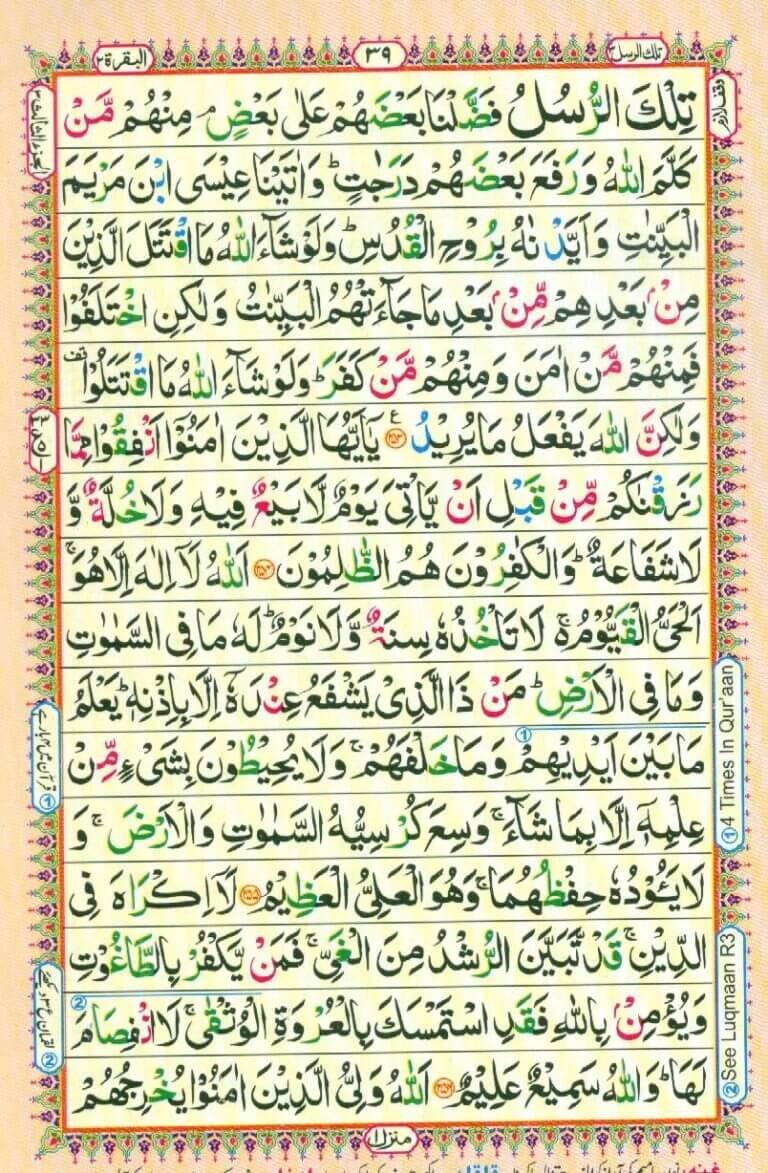 تلك الرسل ٣
٣٩
البقرة ٢
وقف لازم
الجزء الثالث ٣
تِلْكَ الرُّسُلُ فَضَّلْنَا بَعْضَهُمْ عَلٰى بَعْضٍ ۘ مِنْهُمْ مَّنْ
كَلَّمَ اللّٰهُ وَرَفَعَ بَعْضَهُمْ دَرَجٰتٍ ؕ وَاٰتَيْنَا عِيْسَى ابْنَ مَرْيَمَ
الْبَيِّنٰتِ وَاَيَّدْنٰهُ بِرُوْحِ الْقُدُسِ ؕ وَلَوْ شَآءَ اللّٰهُ مَا اقْتَتَلَ الَّذِيْنَ
مِنْۢ بَعْدِهِمْ مِّنْۢ بَعْدِ مَا جَآءَتْهُمُ الْبَيِّنٰتُ وَلٰكِنِ اخْتَلَفُوْا
فَمِنْهُمْ مَّنْ اٰمَنَ وَمِنْهُمْ مَّنْ كَفَرَ ؕ وَلَوْ شَآءَ اللّٰهُ مَا اقْتَتَلُوْا ۫
وَلٰكِنَّ اللّٰهَ يَفْعَلُ مَا يُرِيْدُ ﴿۲۵۳﴾ يٰۤاَيُّهَا الَّذِيْنَ اٰمَنُوْۤا اَنْفِقُوْا مِمَّا
رَزَقْنٰكُمْ مِّنْ قَبْلِ اَنْ يَّاْتِيَ يَوْمٌ لَّا بَيْعٌ فِيْهِ وَلَا خُلَّةٌ وَّ
لَا شَفَاعَةٌ ؕ وَالْكٰفِرُوْنَ هُمُ الظّٰلِمُوْنَ ﴿۲۵۴﴾ اَللّٰهُ لَاۤ اِلٰهَ اِلَّا هُوَ ۚ
اَلْحَيُّ الْقَيُّوْمُ ۚ لَا تَاْخُذُهٗ سِنَةٌ وَّلَا نَوْمٌ ؕ لَهٗ مَا فِى السَّمٰوٰتِ
وَمَا فِى الْاَرْضِ ؕ مَنْ ذَا الَّذِيْ يَشْفَعُ عِنْدَهٗۤ اِلَّا بِاِذْنِهٖ ؕ يَعْلَمُ
مَا بَيْنَ اَيْدِيْهِمْ وَمَا خَلْفَهُمْ ۚ وَلَا يُحِيْطُوْنَ بِشَيْءٍ مِّنْ
①
عِلْمِهٖۤ اِلَّا بِمَا شَآءَ ۚ وَسِعَ كُرْسِيُّهُ السَّمٰوٰتِ وَالْاَرْضَ ۚ وَ
لَا يَـُٔوْدُهٗ حِفْظُهُمَا ۚ وَهُوَ الْعَلِيُّ الْعَظِيْمُ ﴿۲۵۵﴾ لَاۤ اِكْرَاهَ فِى
الدِّيْنِ ۙ قَدْ تَّبَيَّنَ الرُّشْدُ مِنَ الْغَيِّ ۚ فَمَنْ يَّكْفُرْ بِالطَّاغُوْتِ
وَيُؤْمِنْۢ بِاللّٰهِ فَقَدِ اسْتَمْسَكَ بِالْعُرْوَةِ الْوُثْقٰى ۗ لَا انْفِصَامَ
②
لَهَا ؕ وَاللّٰهُ سَمِيْعٌ عَلِيْمٌ ﴿۲۵۶﴾ اَللّٰهُ وَلِيُّ الَّذِيْنَ اٰمَنُوْا يُخْرِجُهُمْ
① 4 Times In Qur'aan
② See Luqmaan R3
منزل ۱